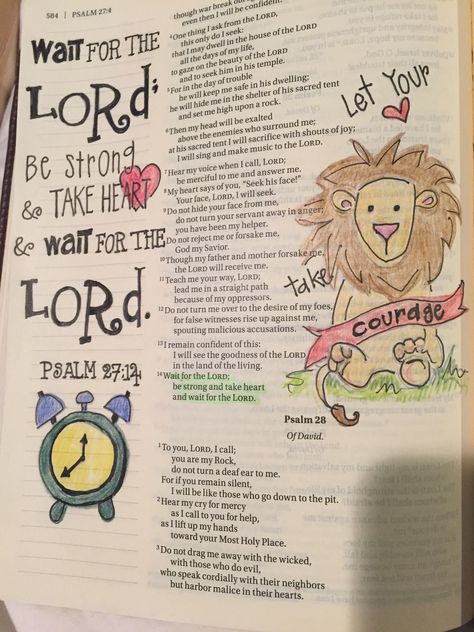 584 | PSALM 27:4
WaiT FOR THE
LORd;
Be Strong
& TAKE HEART
& waiT FOR THE
LORd.
PSALM 27:14
though war break out
even then I will be confident.
4 One thing I ask from the LORD,
this only do I seek:
that I may dwell in the house of the LORD
all the days of my life,
to gaze on the beauty of the LORD
and to seek him in his temple.
5 For in the day of trouble
he will keep me safe in his dwelling;
he will hide me in the shelter of his sacred tent
and set me high upon a rock.
6 Then my head will be exalted
above the enemies who surround me;
at his sacred tent I will sacrifice with shouts of joy;
I will sing and make music to the LORD.
7 Hear my voice when I call, LORD;
be merciful to me and answer me.
8 My heart says of you, "Seek his face!"
Your face, LORD, I will seek.
9 Do not hide your face from me,
do not turn your servant away in anger;
you have been my helper.
Do not reject me or forsake me,
God my Savior.
10 Though my father and mother forsake me,
the LORD will receive me.
11 Teach me your way, LORD;
lead me in a straight path
because of my oppressors.
12 Do not turn me over to the desire of my foes,
for false witnesses rise up against me,
spouting malicious accusations.
13 I remain confident of this:
I will see the goodness of the LORD
in the land of the living.
14 Wait for the LORD;
be strong and take heart
and wait for the LORD.
Psalm 28
Of David.
1 To you, LORD, I call;
you are my Rock,
do not turn a deaf ear to me.
For if you remain silent,
I will be like those who go down to the pit.
2 Hear my cry for mercy
as I call to you for help,
as I lift up my hands
toward your Most Holy Place.
3 Do not drag me away with the wicked,
with those who do evil,
who speak cordially with their neighbors
but harbor malice in their hearts.
Let Your
take
courage